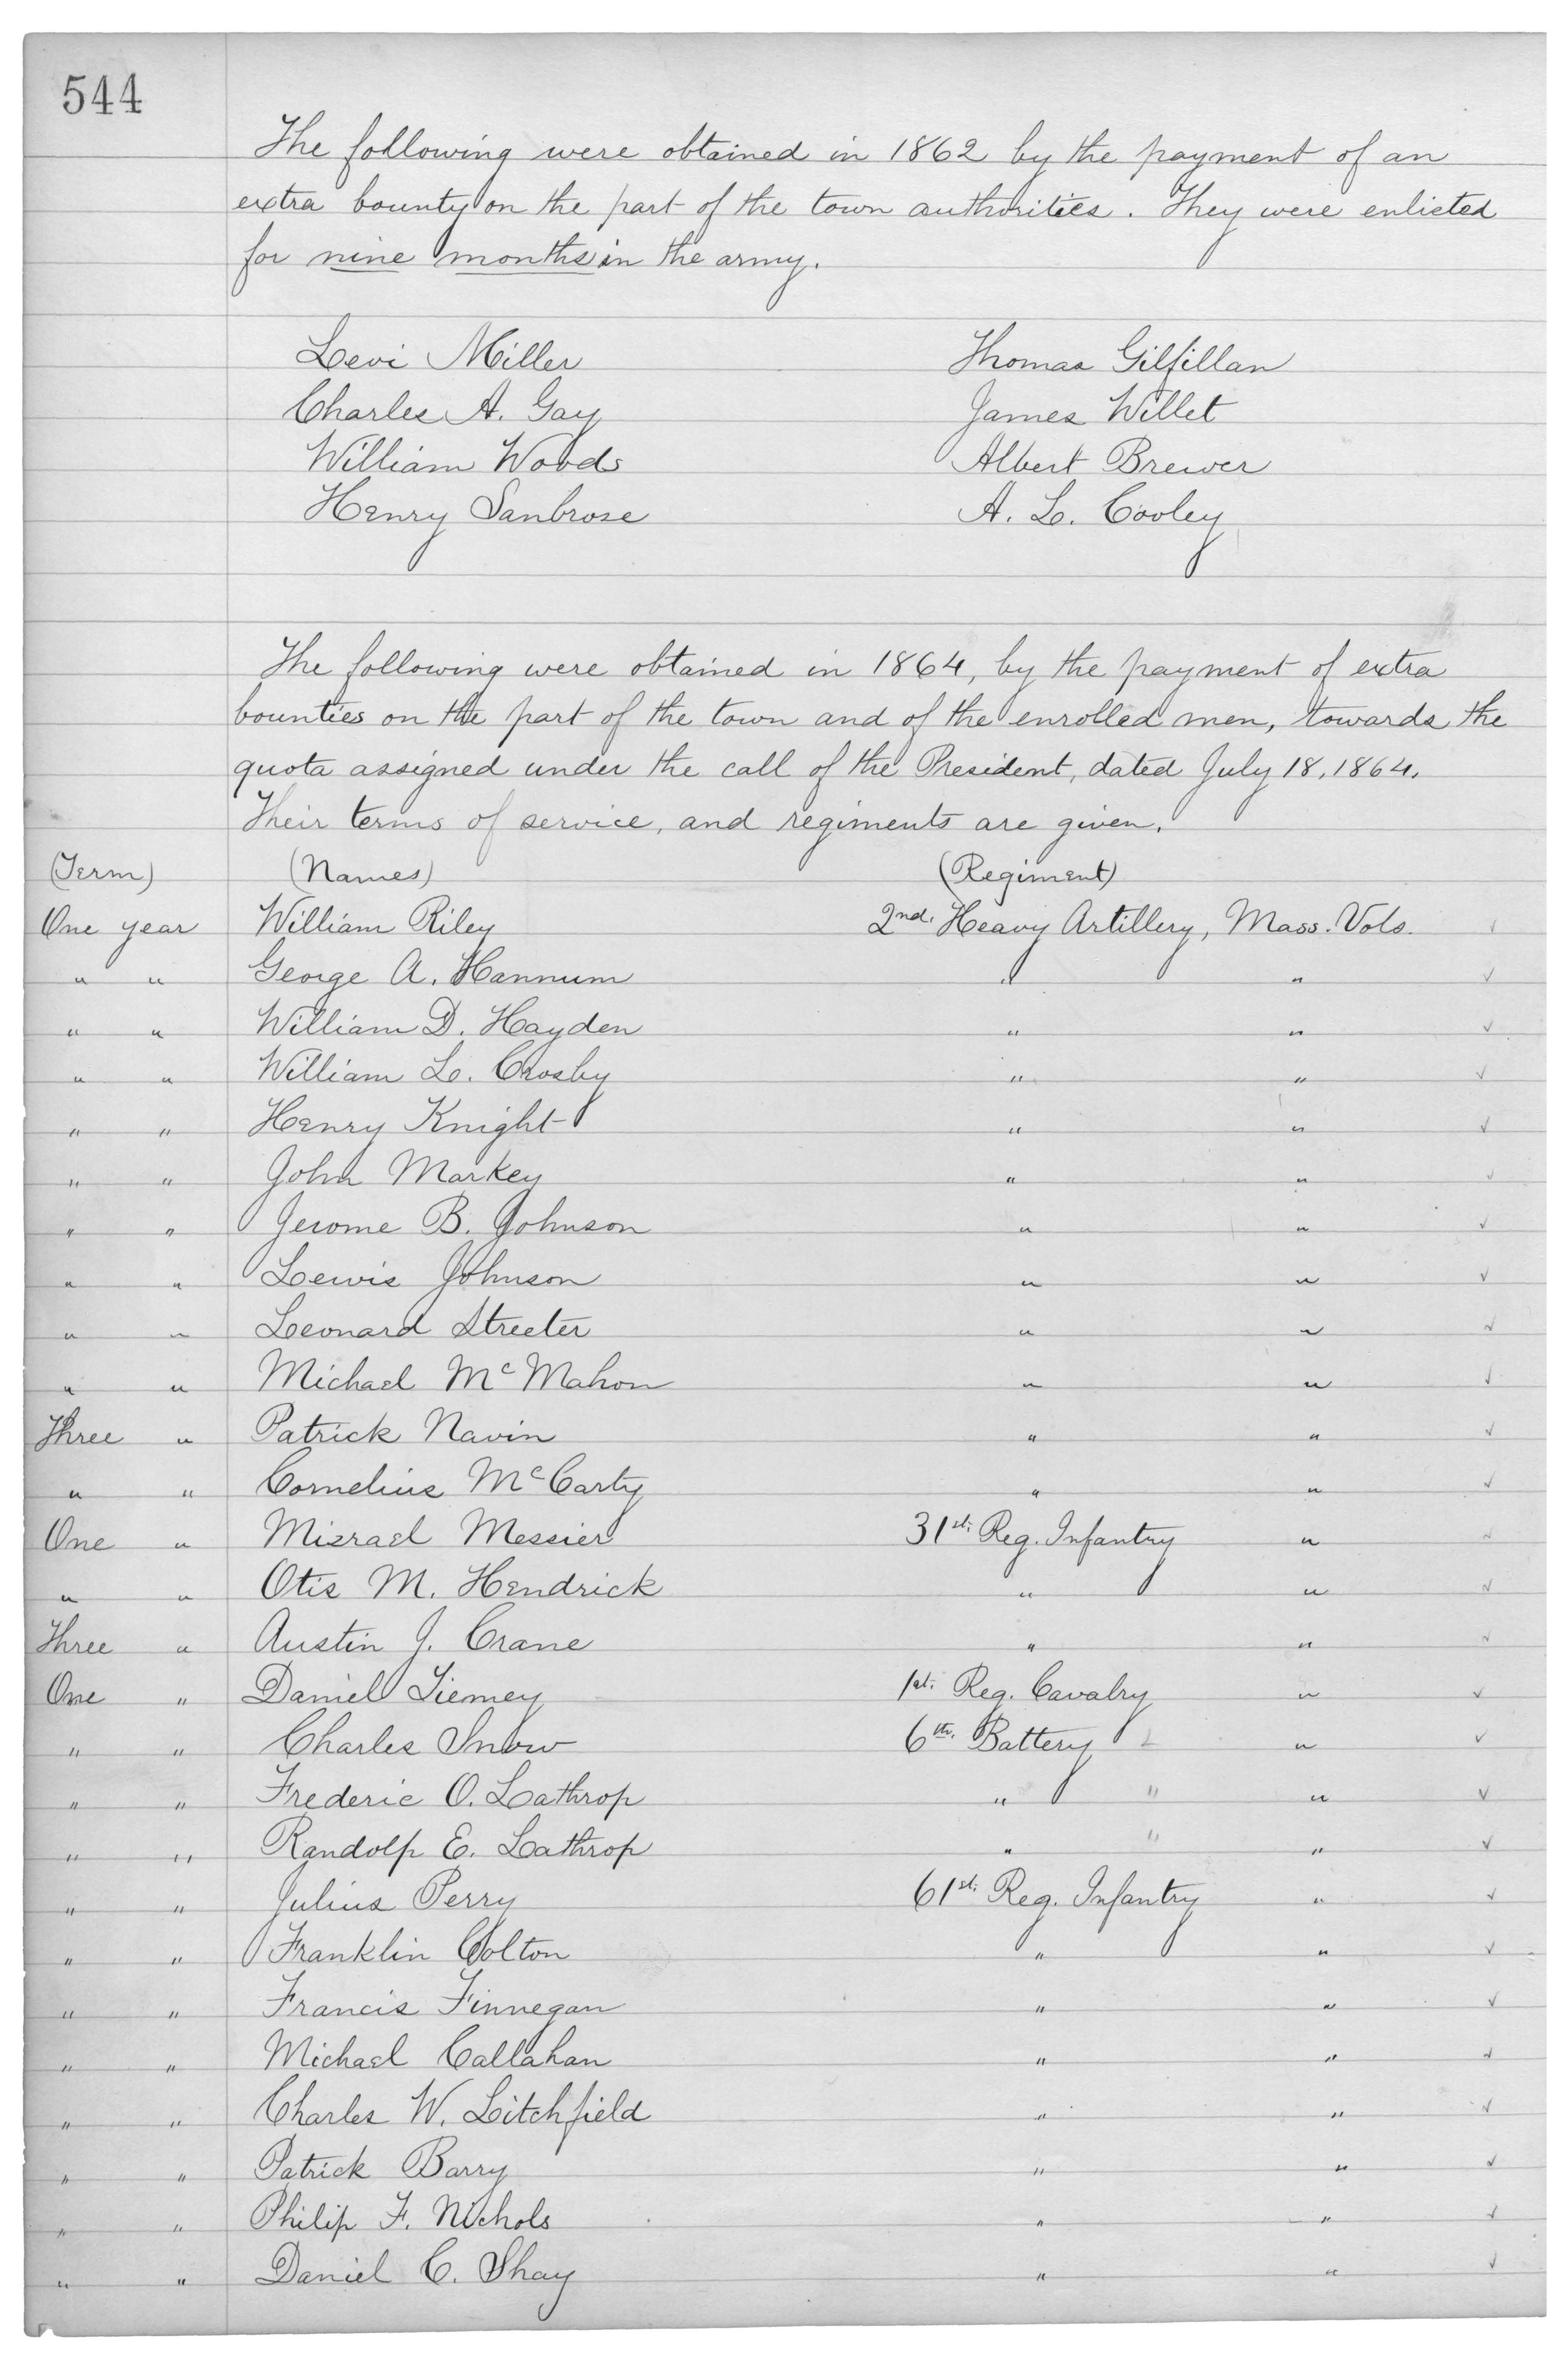 544
The following were obtained in 1862 by the payment of an
extra bounty on the part of the town authorities. They were enlisted
for nine months in the army.
Levi Miller Thomas Gilfillan
Charles A. Gay James Willet
William Woods Albert Brewer
Henry Sanbrose A. L. Cooley
The following were obtained in 1864, by the payment of extra
bounties on the part of the town and of the enrolled men, towards the
quota assigned under the call of the President, dated July 18, 1864.
Their terms of service, and regiments are given.
(Term) (Names) (Regiment)
One year William Riley 2nd. Heavy Artillery, Mass. Vols. ✓
" " George A. Hannum " " ✓
" " William D. Hayden " " ✓
" " William L. Crosby " " ✓
" " Henry Knight " " ✓
" " John Markey " " ✓
" " Jerome B. Johnson " " ✓
" " Lewis Johnson " " ✓
" " Leonard Streeter " " ✓
" " Michael McMahon " " ✓
Three " Patrick Navin " " ✓
" " Cornelius McCarty " " ✓
One " Misrael Messier 31st. Reg. Infantry " ✓
" " Otis M. Hendrick " " ✓
Three " Austin J. Crane " " ✓
One " Daniel Tierney 1st. Reg. Cavalry " ✓
" " Charles Snow 6th. Battery " ✓
" " Frederic O. Lathrop " " " ✓
" " Randolp E. Lathrop " " " ✓
" " Julius Perry 61st. Reg. Infantry " ✓
" " Franklin Colton " " ✓
" " Francis Finnegan " " ✓
" " Michael Callahan " " ✓
" " Charles W. Litchfield " " ✓
" " Patrick Barry " " ✓
" " Philip F. Nichols " " ✓
" " Daniel C. Shay " " ✓